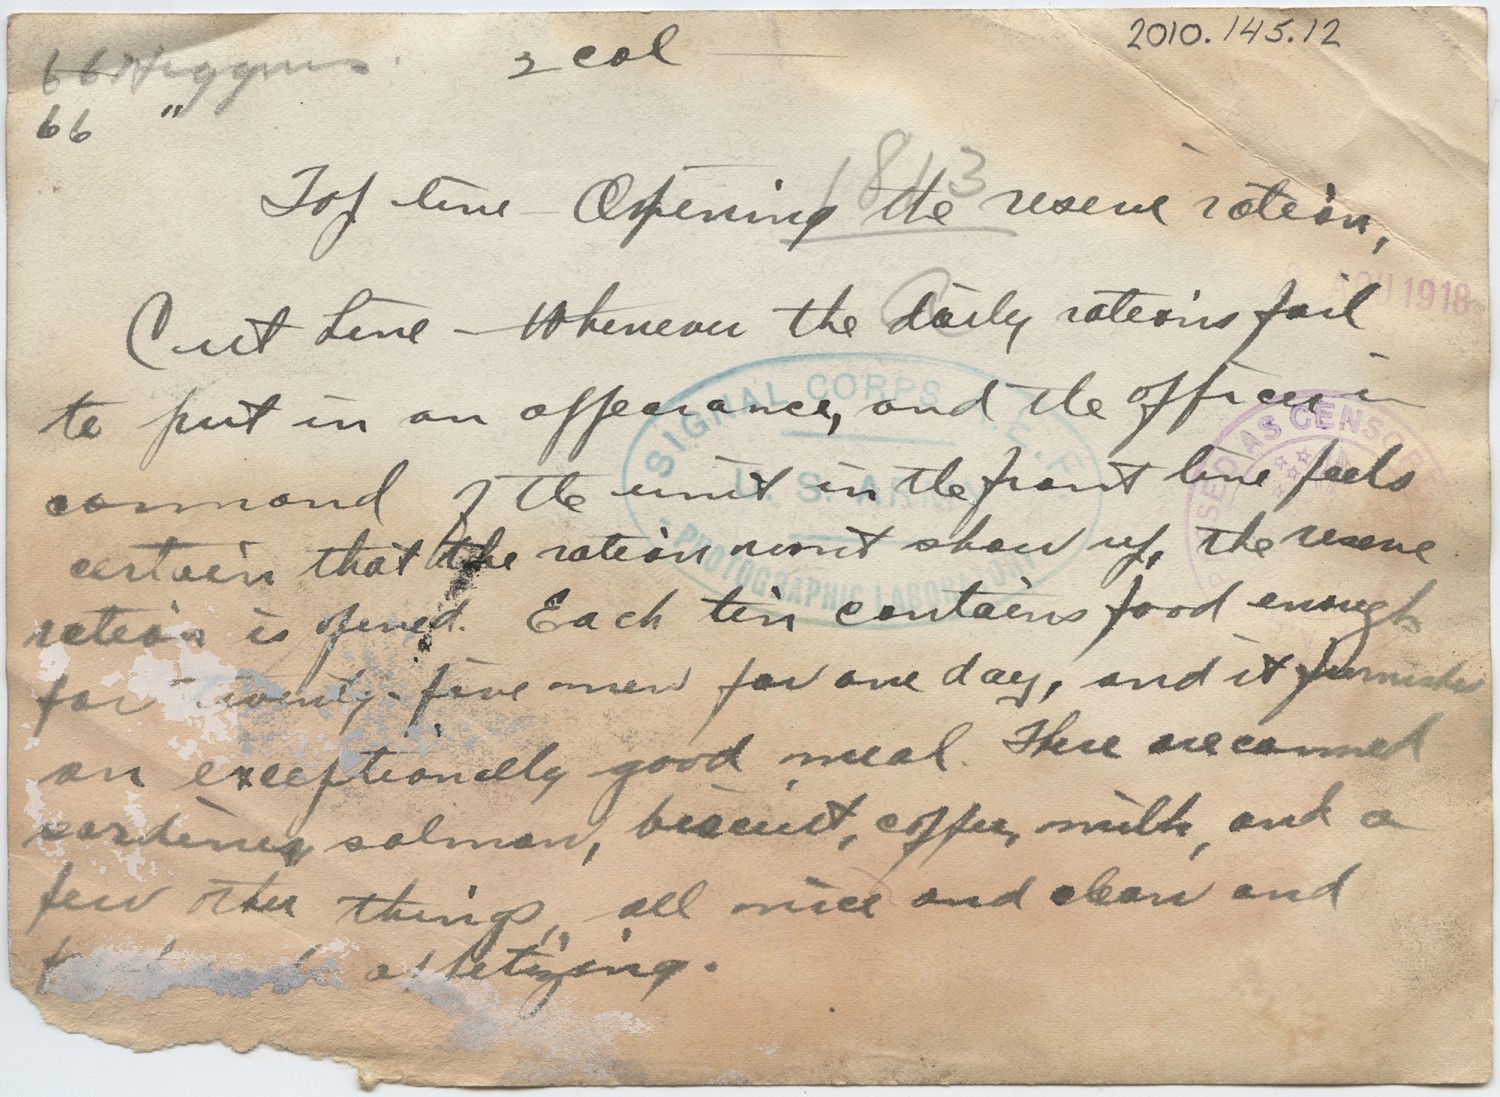 2010.145.12
66 Higgins. 2 col
66 "
1813
Top line - Opening the reserve ration,
AOU 1918
Cut Line - Whenever the daily rations fail
to put in an appearance, and the officer in
command of the unit in the front line feels
certain that the ration won't show up, the reserve
ration is opened. Each tin contains food enough
for twenty-five men for one day, and it furnishes
an exceptionally good meal. There are canned
sardines, salmon, biscuit, coffee, milk, and a
few other things, all nice and clean and
appetizing.
SIGNAL CORPS A.E.F.
U.S. ARMY
PHOTOGRAPHIC LABORATORY
PASSED AS CENSORED